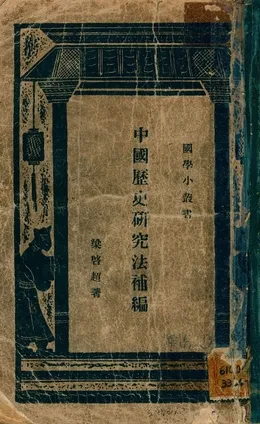 國學小叢書
中國歷史研究法補編
梁啓超著